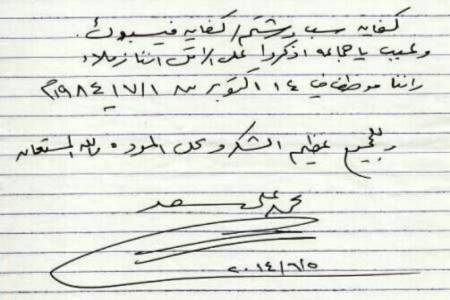 كفاية سب وشتم / كفاية فيسبوك.
وعيب يا جماعة اذكروا على الاقل اننا زملاء
واننا موظفي ١٤ اكتوبر ١٩٨٤/٧/١م
وللجميع عظيم الشكر وعلى المودة والله المستعان
محمد علي سعد
٢٠١٤/٦/٥